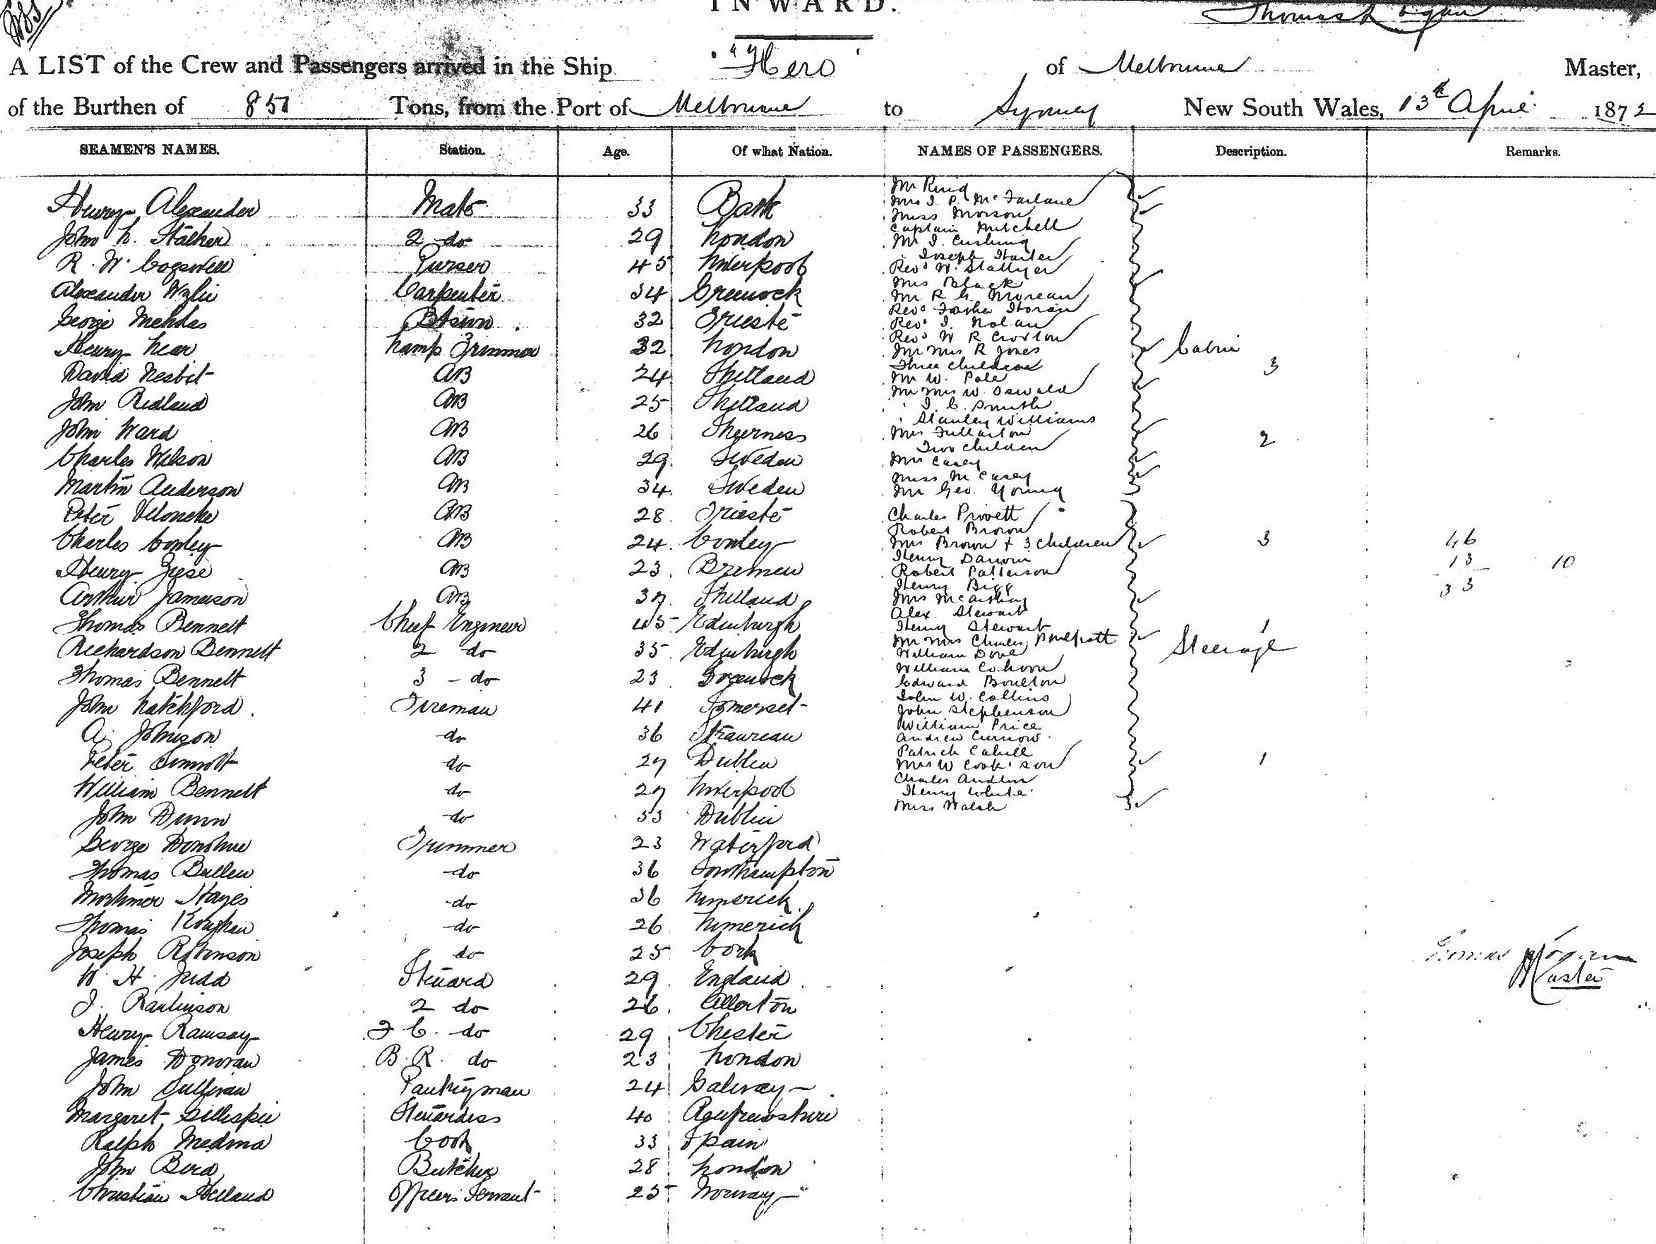 INWARD.
Thomas Logan
A LIST of the Crew and Passengers arrived in the Ship "Hero" of Melbourne Master,
of the Burthen of Tons, from the Port of Melbourne to Sydney New South Wales, 13th April 1872
SEAMEN'S NAMES. Station. Age. Of what Nation. NAMES OF PASSENGERS. Description. Remarks.
Henry Alexander Mate 33 Bath
John L. Stalker 2 do 29 London
R. W. Cogswell Purser 45 Liverpool
Alexander Wylie Carpenter 34 Greenock
George Mendas Btswn. 32 Trieste
Henry Lear Lamp Trimmer 32 London
David Nesbit AB 24 Shetland
John Redland AB 25 Shetland
John Ward AB 26 Sheerness
Charles Nelson AB 29 Sweden
Martin Anderson AB 34 Sweden
Peter AB 28 Trieste
Charles Conley AB 24
Henry Giese AB 23 Bremen
Arthur Jameson AB 37 Shetland
Thomas Bennett Chief Engineer 45 Edinburgh
Richardson Bennett 2 do 35 Edinburgh
Thomas Bennett 3 - do 23 Greenock
John Latchford. Fireman 41 Somerset
A. Johnson do 36
Peter do 27 Dublin
William Bennett do 27 Liverpool
John Dunn do 33 Dublin
George Donohue Trimmer 23 Waterford
Thomas Bullen do 36 Southampton
Mortimer Hayes do 36 Limerick
Thomas do 26 Limerick
Joseph Robinson do 25 Cork
W. H. Judd Steward 29 England
J. Rawlinson 2 do 26 Ollerton
Henry Ramsay F C. do 29 Chester
James Donovan B. R. do 23 London
John Sullivan Pantryman 24 Galway
Margaret Gillespie Stewardess 40 Renfrewshire
Ralph Medina Cook 33 Spain
John Bird Butcher 28 London
Christian Helland Officers Servant 25 Norway
Mr Ring
Mrs J. P. McFarlane
Miss Morison
Captain Mitchell
Mr J. Cushing
" Joseph Hunter
Revd W. Slatyer
Mrs Black
Mr R G. Moreau
Revd Father Horan
Revd J. Nolan
Revd W R Croxton
Mr Mrs R Jones Cabin
Three children 3
Mr W. Pole
Mr Mrs W. Oswald
" J. C. Smith
" Stanley Williams
Mrs Fullarton
Two children 2
Mrs Casey
Miss M Casey
Mr Geo. Young
Charles Privett
Robert Brown
Mrs Brown + 3 children 3 46
Henry Darwin 13 10
Robert Patterson
Henry Bigg 33
Mrs McCarthy
Alex Stewart
Henry Stewart 1
Mr Mrs Charles Steerage
William Dove
William
Edward Boulton
John W. Collins
John Stephenson
William Price
Andrew Curnow
Patrick Cahill
Mrs W Cook & son 1
Charles
Henry White
Miss Walsh
Thomas Logan
Master